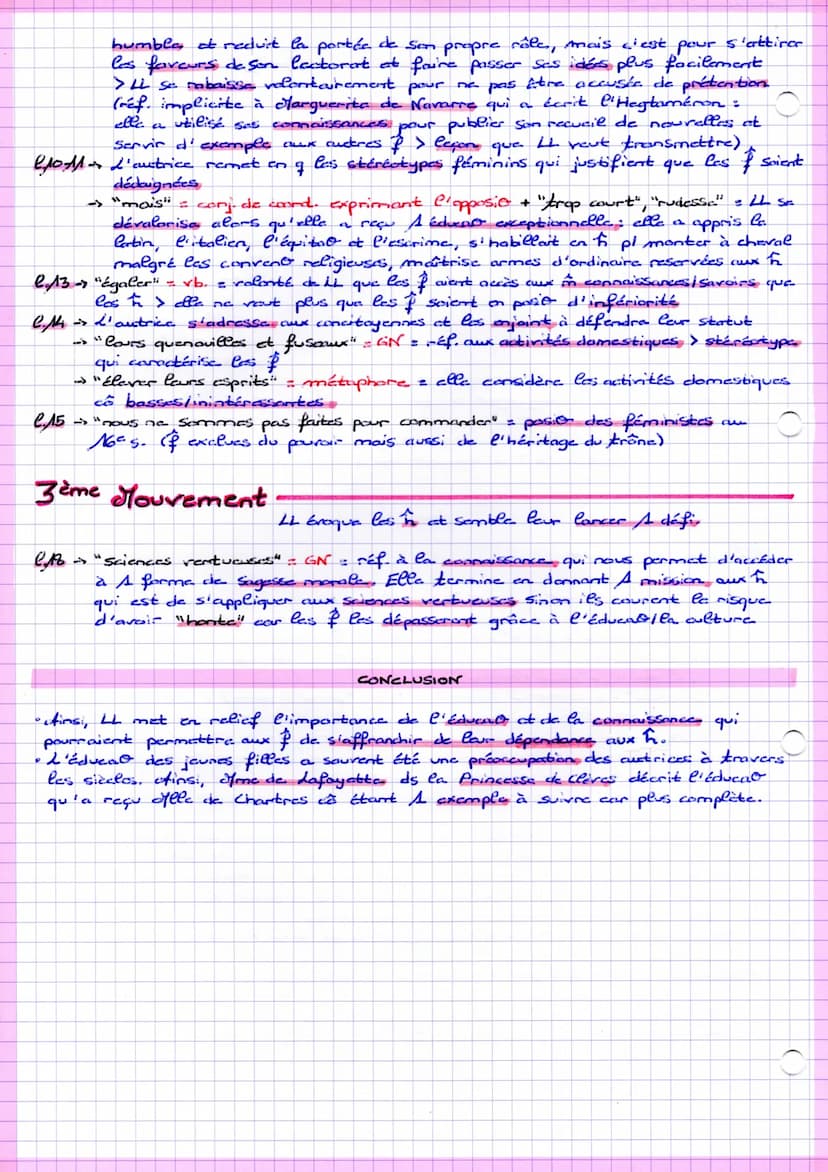 humble, et reduit la portée de son propre rôle, mais c'est pour s'attirer
les faveurs de son lectorat et faire passer ses idées plus facilement
> LL se rabaisse volontairement pour ne pas être accusée de prétention
(réf. implicite à Marguerite de Navarre qui a écrit l'Heptaméron :
elle a utilisé ses connaissances pour publier son recueil de nouvelles et
servir d'exemple aux autres f > leçon que LL veut transmettre)
l.10-11 → L'autrice remet en q les stéréotypes féminins qui justifient que les f soient
dédaignées
→ "mais" = conj. de coord. exprimant l'opposio + "trop court", "rudesse" = LL se
dévalorise alors qu'elle a reçu 1 éducao exceptionnelle : elle a appris le
latin, l'italien, l'équitao et l'escrime, s'habillait en h pr monter à cheval
malgré les conveno religieuses, maîtrise armes d'ordinaire reservées aux h
l.13 → "égaler" = vb. = volonté de LL que les f aient accès aux m̂ connaissances/savoirs que
les h > elle ne veut plus que les f soient en posio d'infériorité
l.14 → L'autrice s'adresse aux concitoyennes et les enjoint à défendre leur statut
→ "leurs quenouilles et fuseaux" = GN = réf. aux activités domestiques > stéréotype
qui caractérise les f
→ "élever leurs esprits" = métaphore = elle considère les activités domestiques
cô basses/inintéressantes
l.15 → "nous ne sommes pas faites pour commander" = posio des féministes au
16e s. (f exclues du pouvoir mais aussi de l'héritage du trône)
3ème Mouvement
LL évoque les h et semble leur lancer 1 défi
l.18 → "sciences vertueuses" = GN = réf. à la connaissance qui nous permet d'accéder
à 1 forme de sagesse morale. Elle termine en donnant 1 mission aux h
qui est de s'appliquer aux sciences vertueuses sinon ils courent le risque
d'avoir "honte" car les f les dépasseront grâce à l'éducao/la culture
CONCLUSION
• Ainsi, LL met en relief l'importance de l'éducao et de la connaissance qui
pourraient permettre aux f de s'affranchir de leur dépendance aux h.
• L'éducao des jeunes filles a souvent été une préoccupation des autrices à travers
les siècles. Ainsi, Mme de Lafayette ds la Princesse de Clèves décrit l'éducao
qu'a reçu Mlle de Chartres cô étant 1 exemple à suivre car plus complète.